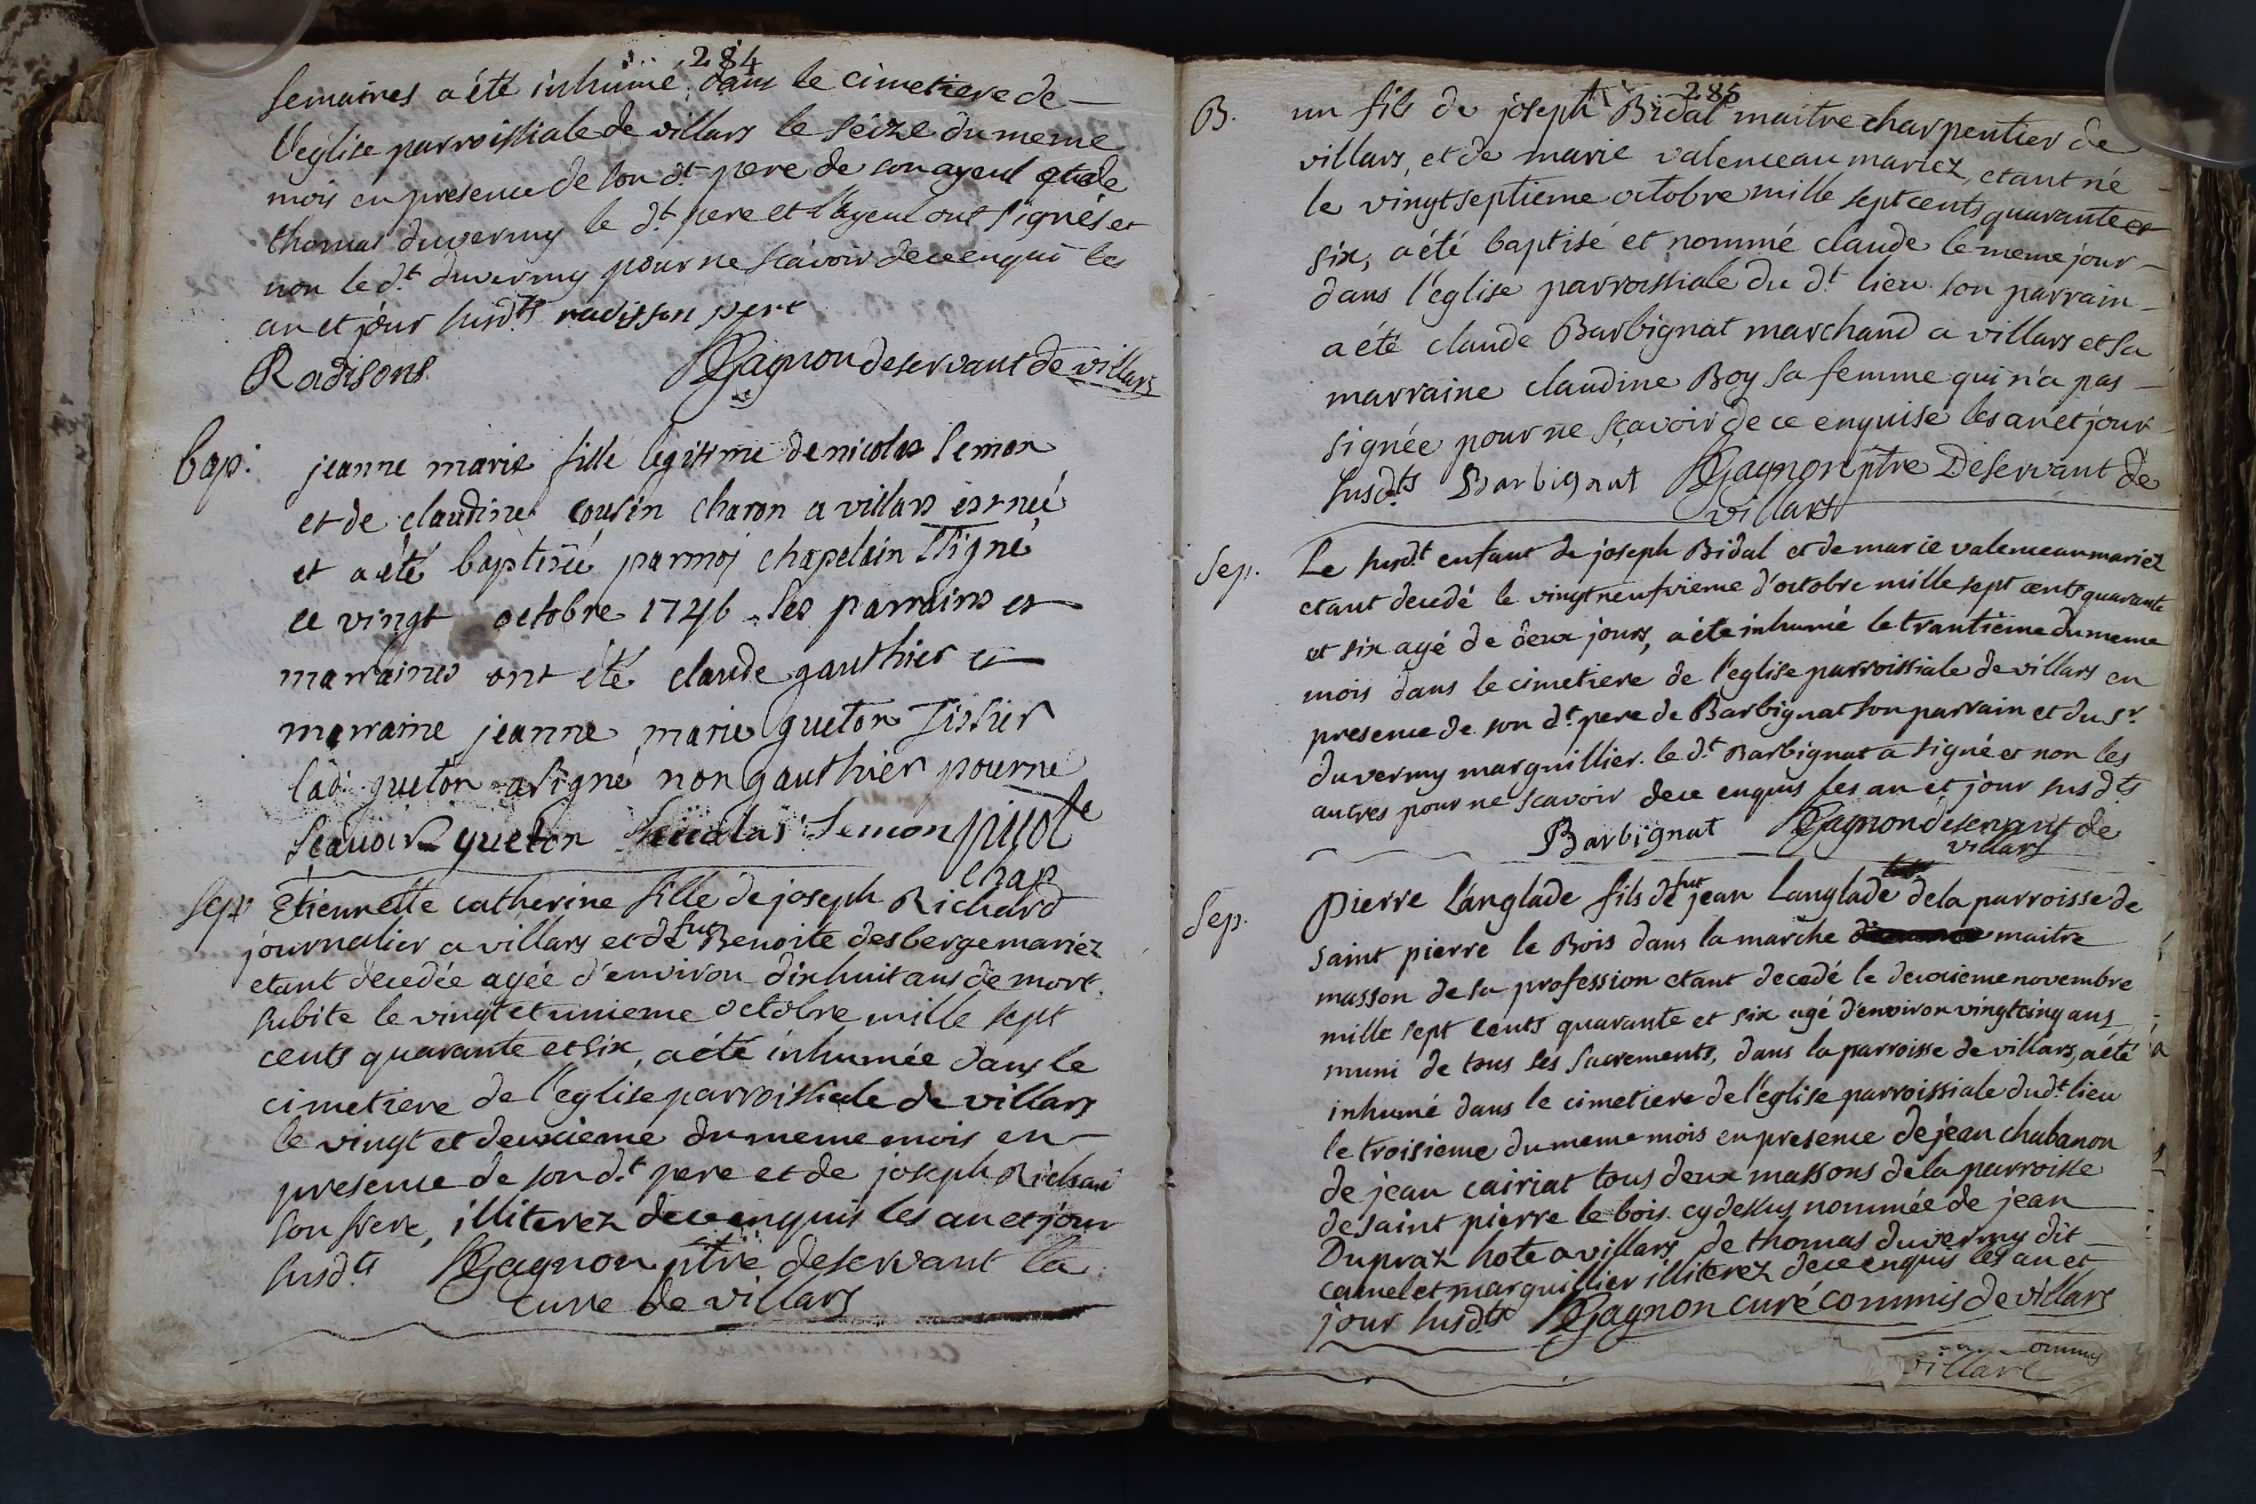 284
semaines a été inhumé dans le cimetiere de
l'église parroissiale de villars le seize du meme
mois en presence de son d.t pere de son ayeul et de
thomas duvermy le d.t pere et l'ayeul ont signés et
non le d.t duvermy pour ne scavoir de ce enquis les
an et jour susd.ts radisson pert
Radisons RGagnon deservant de villars
bap: jeanne marie fille legitime de nicolas Semon
et de claudine cousin charon a villars est neé
et a été baptiseé par moi chapelain ssigné
ce vingt octobre 1746 les parrains et
marraines ont été claude gauthier et
marraine jeanne marie queton Tissier
lad: queton a signé non gauthier pour ne
scavoir queton Semon pirot
chap
sep Etiennette catherine fille de joseph Richard
journalier a villars et de fut Benoite desberge mariez
etant decedée agée d'environ dixhuit ans de mort
subite le vingt et unieme octobre mille sept
cents quarante et six, a été inhumée dans le
cimetiere de l'eglise parroissiale de villars
le vingt et deuxieme du meme mois en
presence de son d.t pere et de joseph Richard
son frere, illiterez de ce enquis les an et jour
susd.ts RGagnon ptre deservant la
cure de villars
285
B. un fils de joseph Bidal maitre charpentier de
villars, et de marie valenceau mariez, etant né
le vingtseptieme octobre mille sept cents quarante et
six, a été baptisé et nommé claude le meme jour
dans l'église parroissiale du d.t lieu son parrain
a été claude Barbignat marchand a villars et sa
marraine claudine Boy sa femme qui n'a pas
signée pour ne sçavoir de ce enquise les an et jour
susd.ts Barbignat RGagnon ptre Deservant de
villars
Sep. Le susd.t enfant de joseph Bidal et de marie valenceau mariez
etant decedé le vingtneufvieme d'octobre mille sept cents quarante
et six agé de deux jours, a été inhumé le trantième du meme
mois dans le cimetiere de l'eglise parroissiale de villars en
presence de son d.t pere de Barbignat son parrain et du s.r
duvermy marguillier. le d.t Barbignat a signé et non les
autres pour ne scavoir de ce enquis les an et jour susd.ts
Barbignat RGagnon deservant de
villars
Sep. pierre Langlade fils de fut jean Langlade de la parroisse de
saint pierre le Bois dans la marche maitre
masson de sa profession etant decedé le deuxieme novembre
mille sept cents quarante et six agé d'environ vingtcinq ans
muni de tous ses sacrements, dans la parroisse de villars, a été
inhumé dans le cimetiere de l'église parroissiale dud.t lieu
le troisieme du meme mois en presence de jean chabanon
de jean cairiat tous deux massons de la parroisse
de saint pierre le bois cy dessus nommée de jean
Dupraz hote a villars de thomas duvermy dit
camel et marguillier illiterez de ce enquis les an et
jour susd.ts RGagnon curé commis de villars
villars